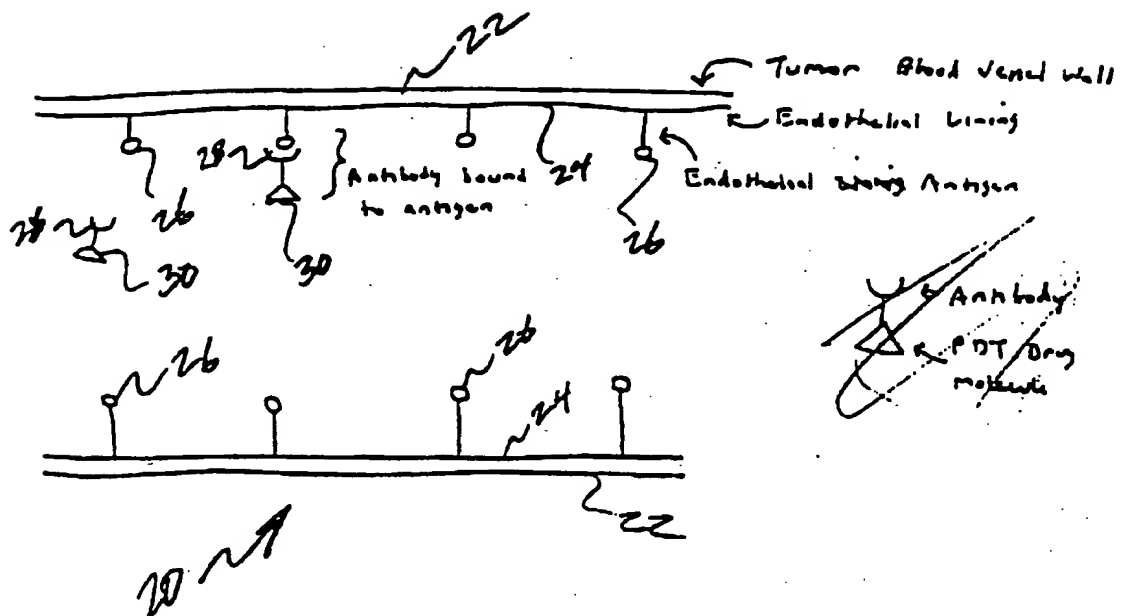 22
Tumor Blood Vessel Wall
Endothelial Lining
28
Antibody bound
to antigen
24
Endothelial Lining Antigen
28
26
30
30
26
Antibody
PDT Drug
Molecule
26
26
24
22
20